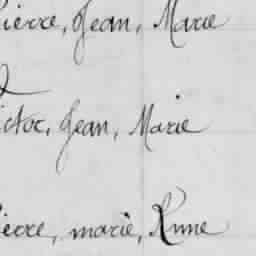 Pierre, Jean, Marie
Victor, Jean, Marie
Pierre, marie,